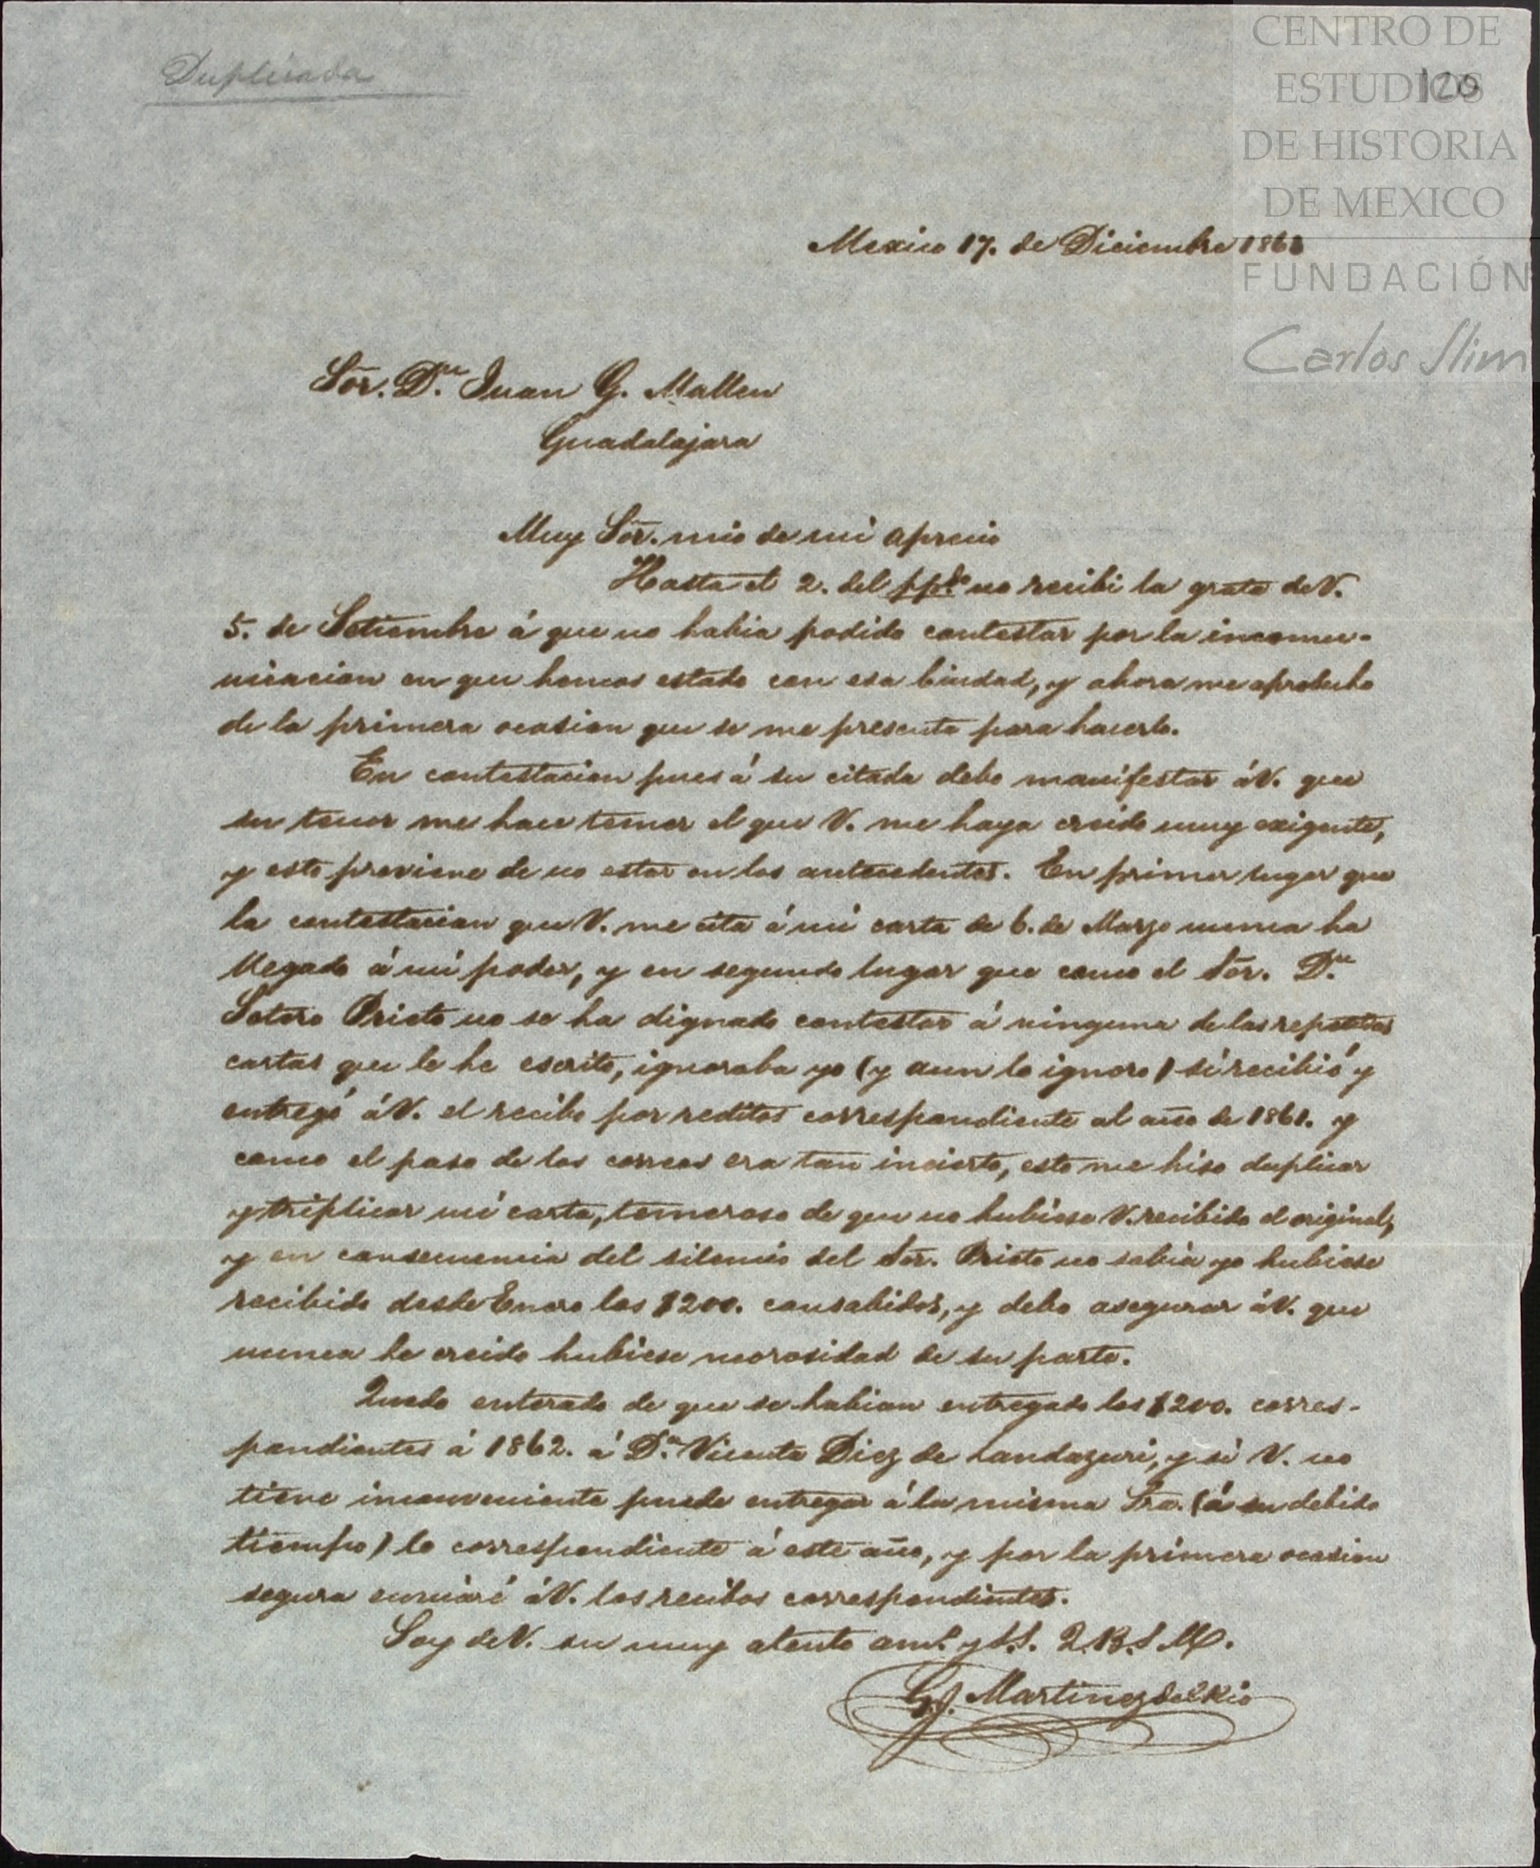 Duplicada
120
CENTRO DE
ESTUDIOS
DE HISTORIA
DE MEXICO
FUNDACIÓN
Carlos Slim
Mexico 17. de Diciembre 186
Sõr. Dn. Juan G. Mallen
Guadalajara
Muy Sõr. mio de mi aprecio
Hasta el 2. del ppdo. no recibi la grata de V.
5. de Setiembre á que no habia podido contestar por la incomu-
nicacion en que hemos estado con esa Ciudad, y ahora me aprobecho
de la primera ocasion que se me presenta para hacerlo.
En contestacion pues á su citada debo manifestar á V. que
su tenor me hace temer el que V. me haya creido muy exigente,
y esto proviene de no estar en los antecedentes. En primer lugar que
la contestacion que V. me cita á mi carta de 6. de Marzo nunca ha
llegado á mi poder, y en segundo lugar que como el Sõr. Dn.
Sotero Prieto no se ha dignado contestar á ninguna de las repetidas
cartas que le he escrito, ignoraba yo (y aun lo ignoro) si recibió y
entregó á V. el recibo por reditos correspondiente al año de 1861. y
como el paso de los correos era tan incierto, esto me hiso duplicar
y triplicar mi carta, temeroso de que no hubiese V. recibido el original,
y en consecuencia del silencio del Sõr. Prieto no sabia yo hubiese
recibido desde Enero los $200. consabidos, y debo asegurar á V. que
nunca he creido hubiese morosidad de su parte.
Quedo enterado de que se habian entregado los $200. corres-
pondientes á 1862. á Da. Vicenta Diez de Landazuri, y si V. no
tiene inconveniente puede entregar á la misma Sra. (á su debido
tiempo) lo correspondiente á este año, y por la primera ocasion
segura enviaré á V. los recibos correspondientes.
Soy de V. su muy atento amo. y S.S. Q.B.S.M.
G. Martinez del Rio